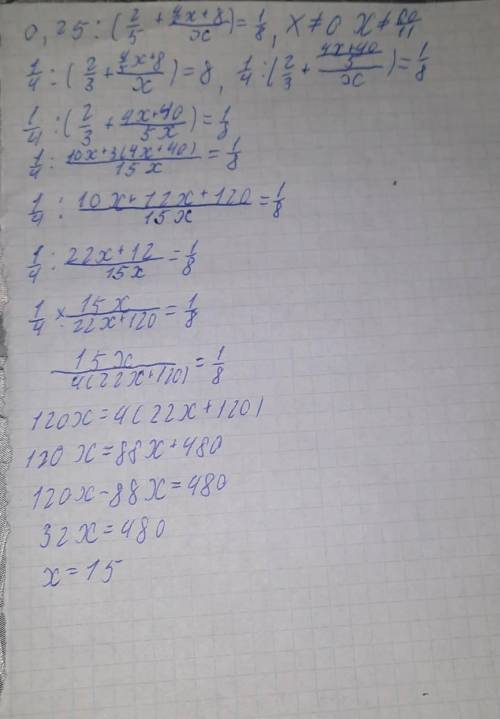 0,25:(2/5 + (4/5x+8)/x)=1/8, x≠0 x≠60/11
1/4:(2/3+(4/5x+8)/x)=8, 1/4:(2/3+((4x+40)/5)/x)=1/8
1/4:(2/3+(4x+40)/5x)=1/8
1/4:(10x+3(4x+40))/15x=1/8
1/4:(10x+12x+120)/15x=1/8
1/4:(22x+12)/15x=1/8
1/4×15x/(22x+120)=1/8
15x/4(22x+120)=1/8
120x=4(22x+120)
120x=88x+480
120x-88x=480
32x=480
x=15